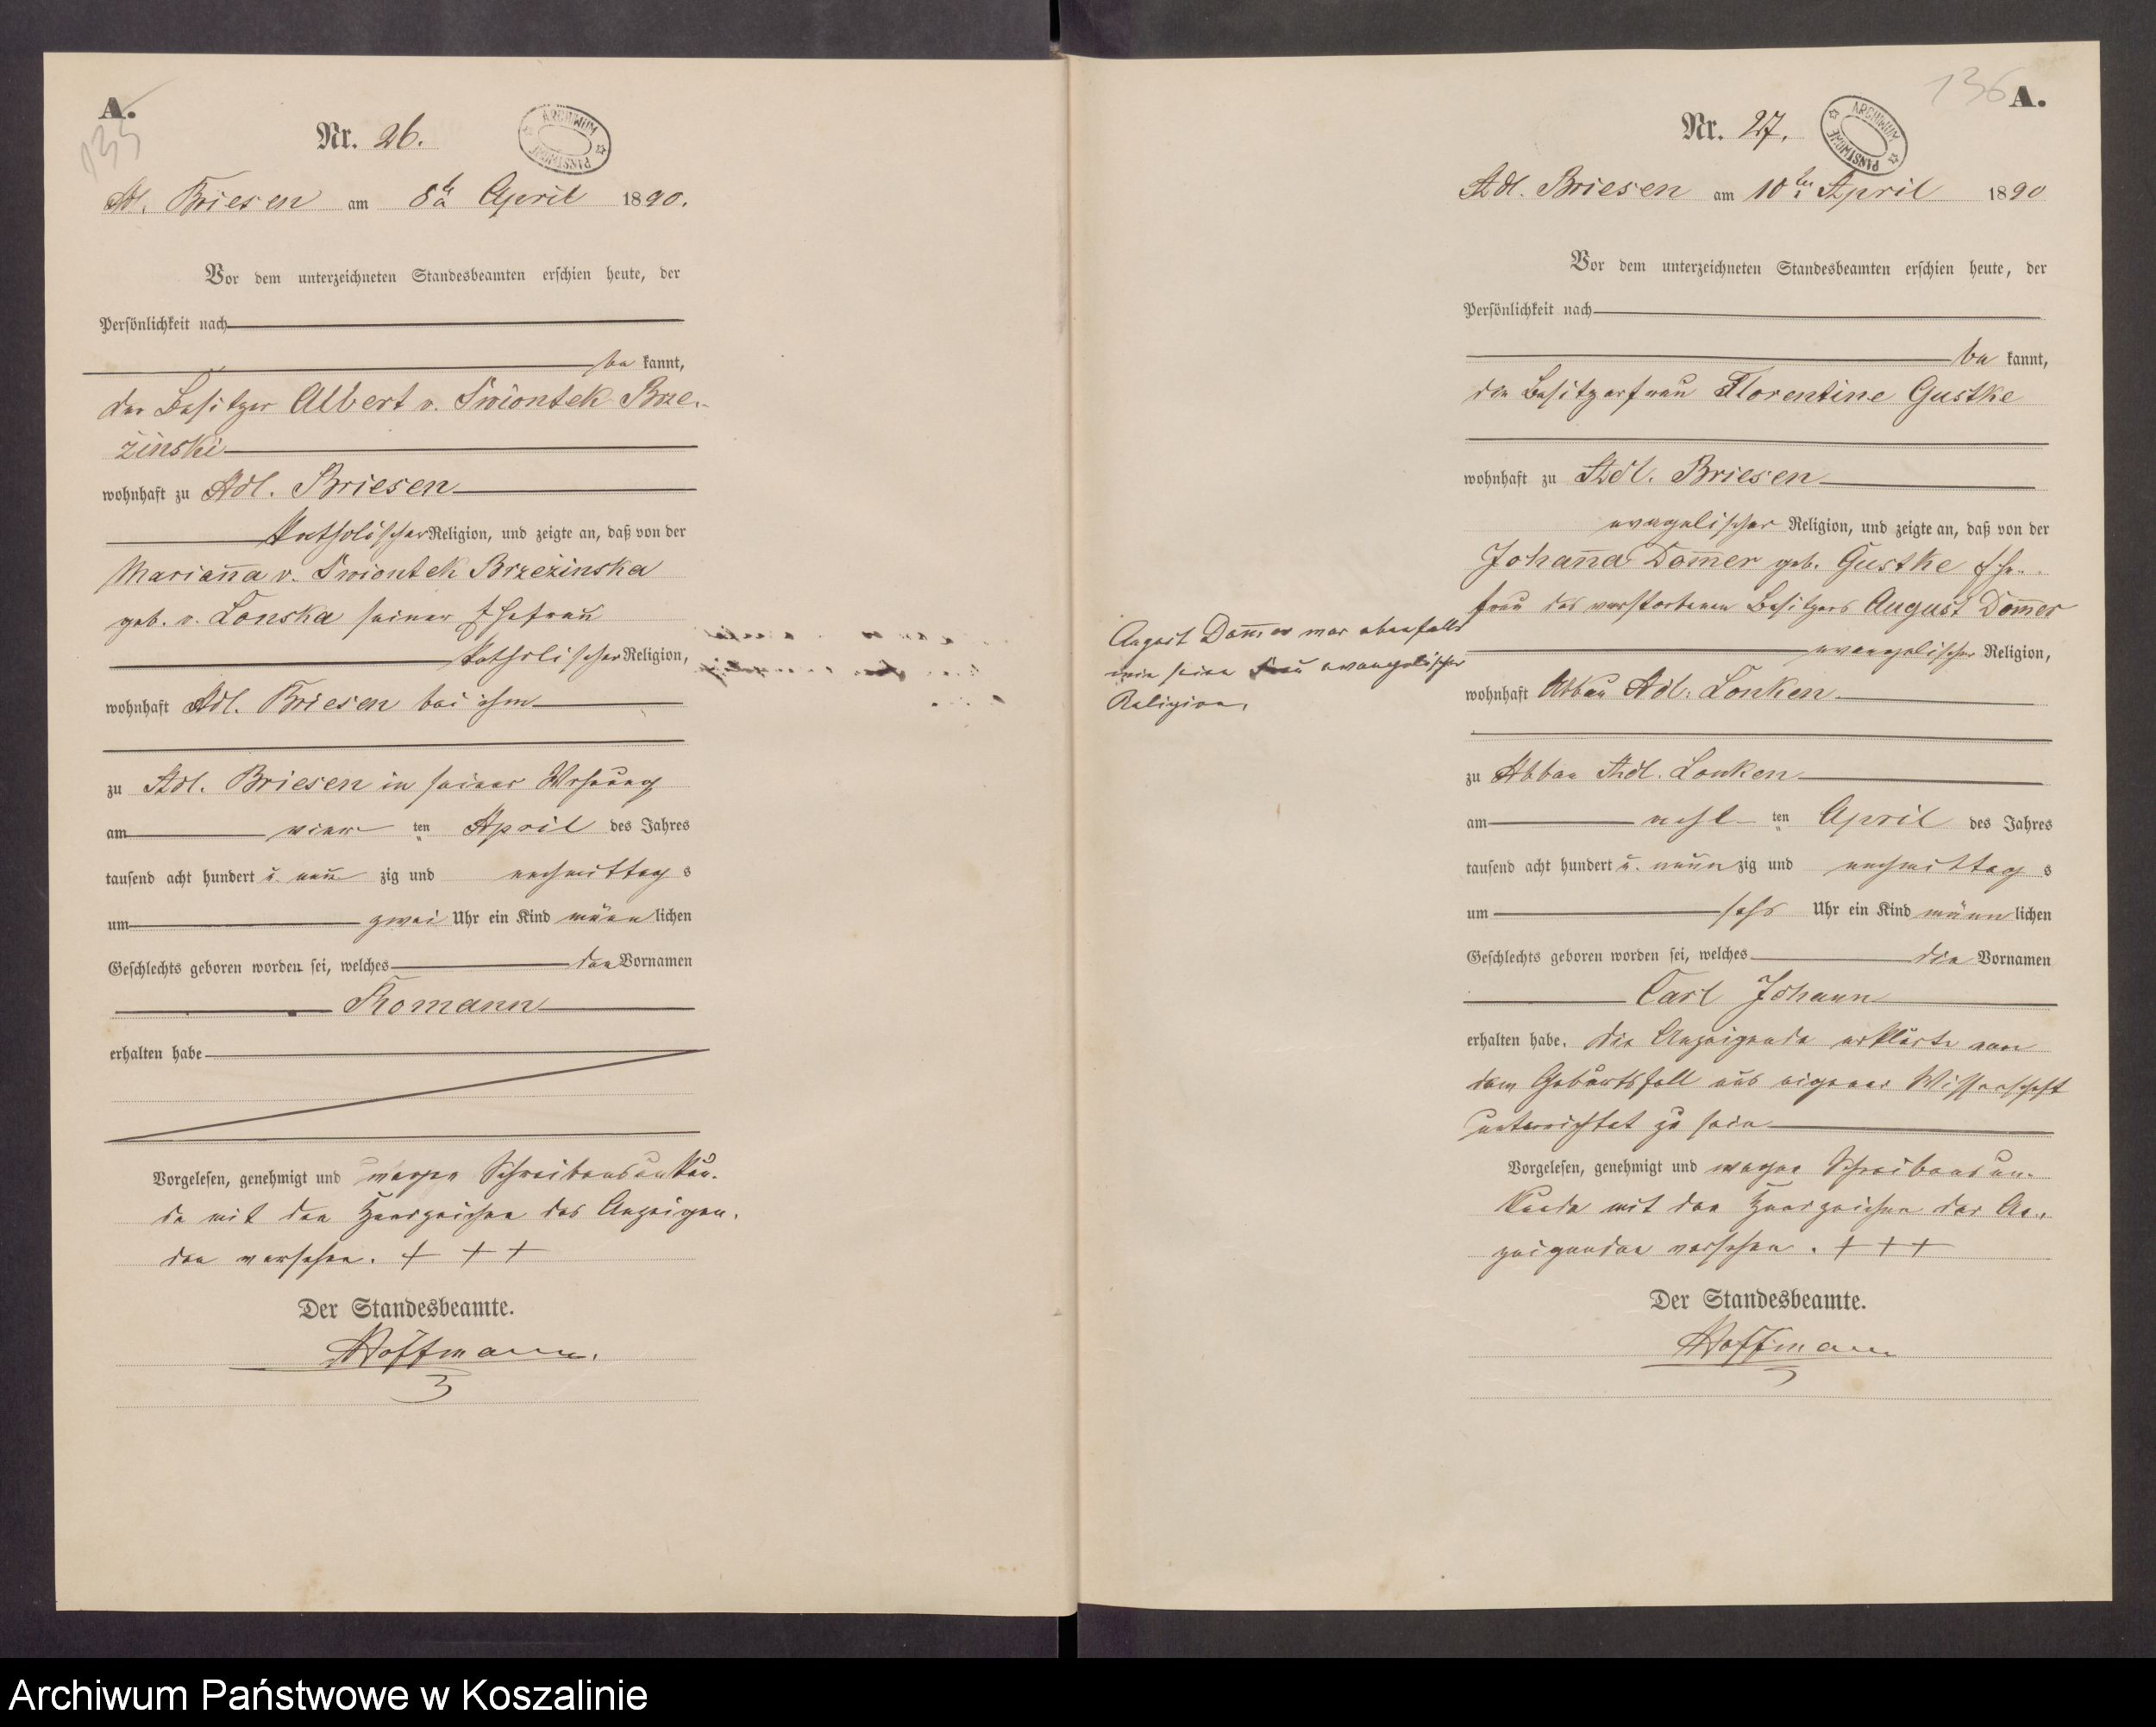 A.
135
Nr. 26.
ARCHIWUM PAŃSTWOWE
Adl. Briesen am 8te April 1890.
Vor dem unterzeichneten Standesbeamten erschien heute, der
Persönlichkeit nach
be kannt,
der Besitzer Albert v. Swiontek Brze-
zinski
wohnhaft zu Adl. Briesen
katholischer Religion, und zeigte an, daß von der
Marian̄a v. Swiontek Brzezinska
geb. v. Lonska seiner Ehefrau
katholischer Religion,
wohnhaft Adl. Briesen bei ihm
zu Adl. Briesen in seiner Wohnung
am vier ten April des Jahres
tausend acht hundert u. neun zig und nachmittag s
um zwei Uhr ein Kind männ lichen
Geschlechts geboren worden sei, welches den Vornamen
Romann
erhalten habe
Vorgelesen, genehmigt und wegen Schreibensunkun-
de mit den Handzeichen des Anzeigen-
den versehen. + + +
Der Standesbeamte.
Hoffmann.
136 A.
Nr. 27.
ARCHIWUM PAŃSTWOWE
Adl. Briesen am 10ten April 1890
Vor dem unterzeichneten Standesbeamten erschien heute, der
Persönlichkeit nach
be kannt,
die Besitzerfrau Florentine Gustke
wohnhaft zu Adl. Briesen
evangelischer Religion, und zeigte an, daß von der
Johan̄a Dom̄er geb. Gustke Ehe-
frau des verstorbenen Besitzers August Dom̄er
evangelischer Religion,
August Dom̄er war ebenfalls
wie seine Frau evangelischer
Religion.
wohnhaft Abbau Adl. Lonken
zu Abbau Adl. Lonken
am acht ten April des Jahres
tausend acht hundert u. neun zig und nachmittag s
um sechs Uhr ein Kind männ lichen
Geschlechts geboren worden sei, welches die Vornamen
Carl Johann
erhalten habe. Die Anzeigende erklärte von
dem Geburtsfall aus eigener Wissenschaft
unterrichtet zu sein
Vorgelesen, genehmigt und wegen Schreibensun-
kunde mit den Handzeichen der An-
zeigenden versehen. + + +
Der Standesbeamte.
Hoffmann
Archiwum Państwowe w Koszalinie